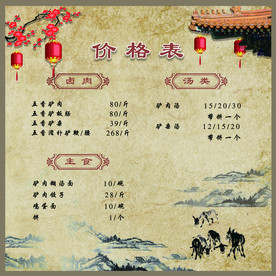 价格表
卤肉
五香驴肉 80/斤
五香驴板肠 80/斤
五香驴杂 39/斤
五香滋补驴鞭/腰 268/斤
汤类
驴肉汤 15/20/30
带饼一个
驴杂汤 12/15/20
带饼一个
主食
驴肉糊汤面 10/碗
驴肉饺子 28/斤
鸡蛋面 10/碗
饼 1/个